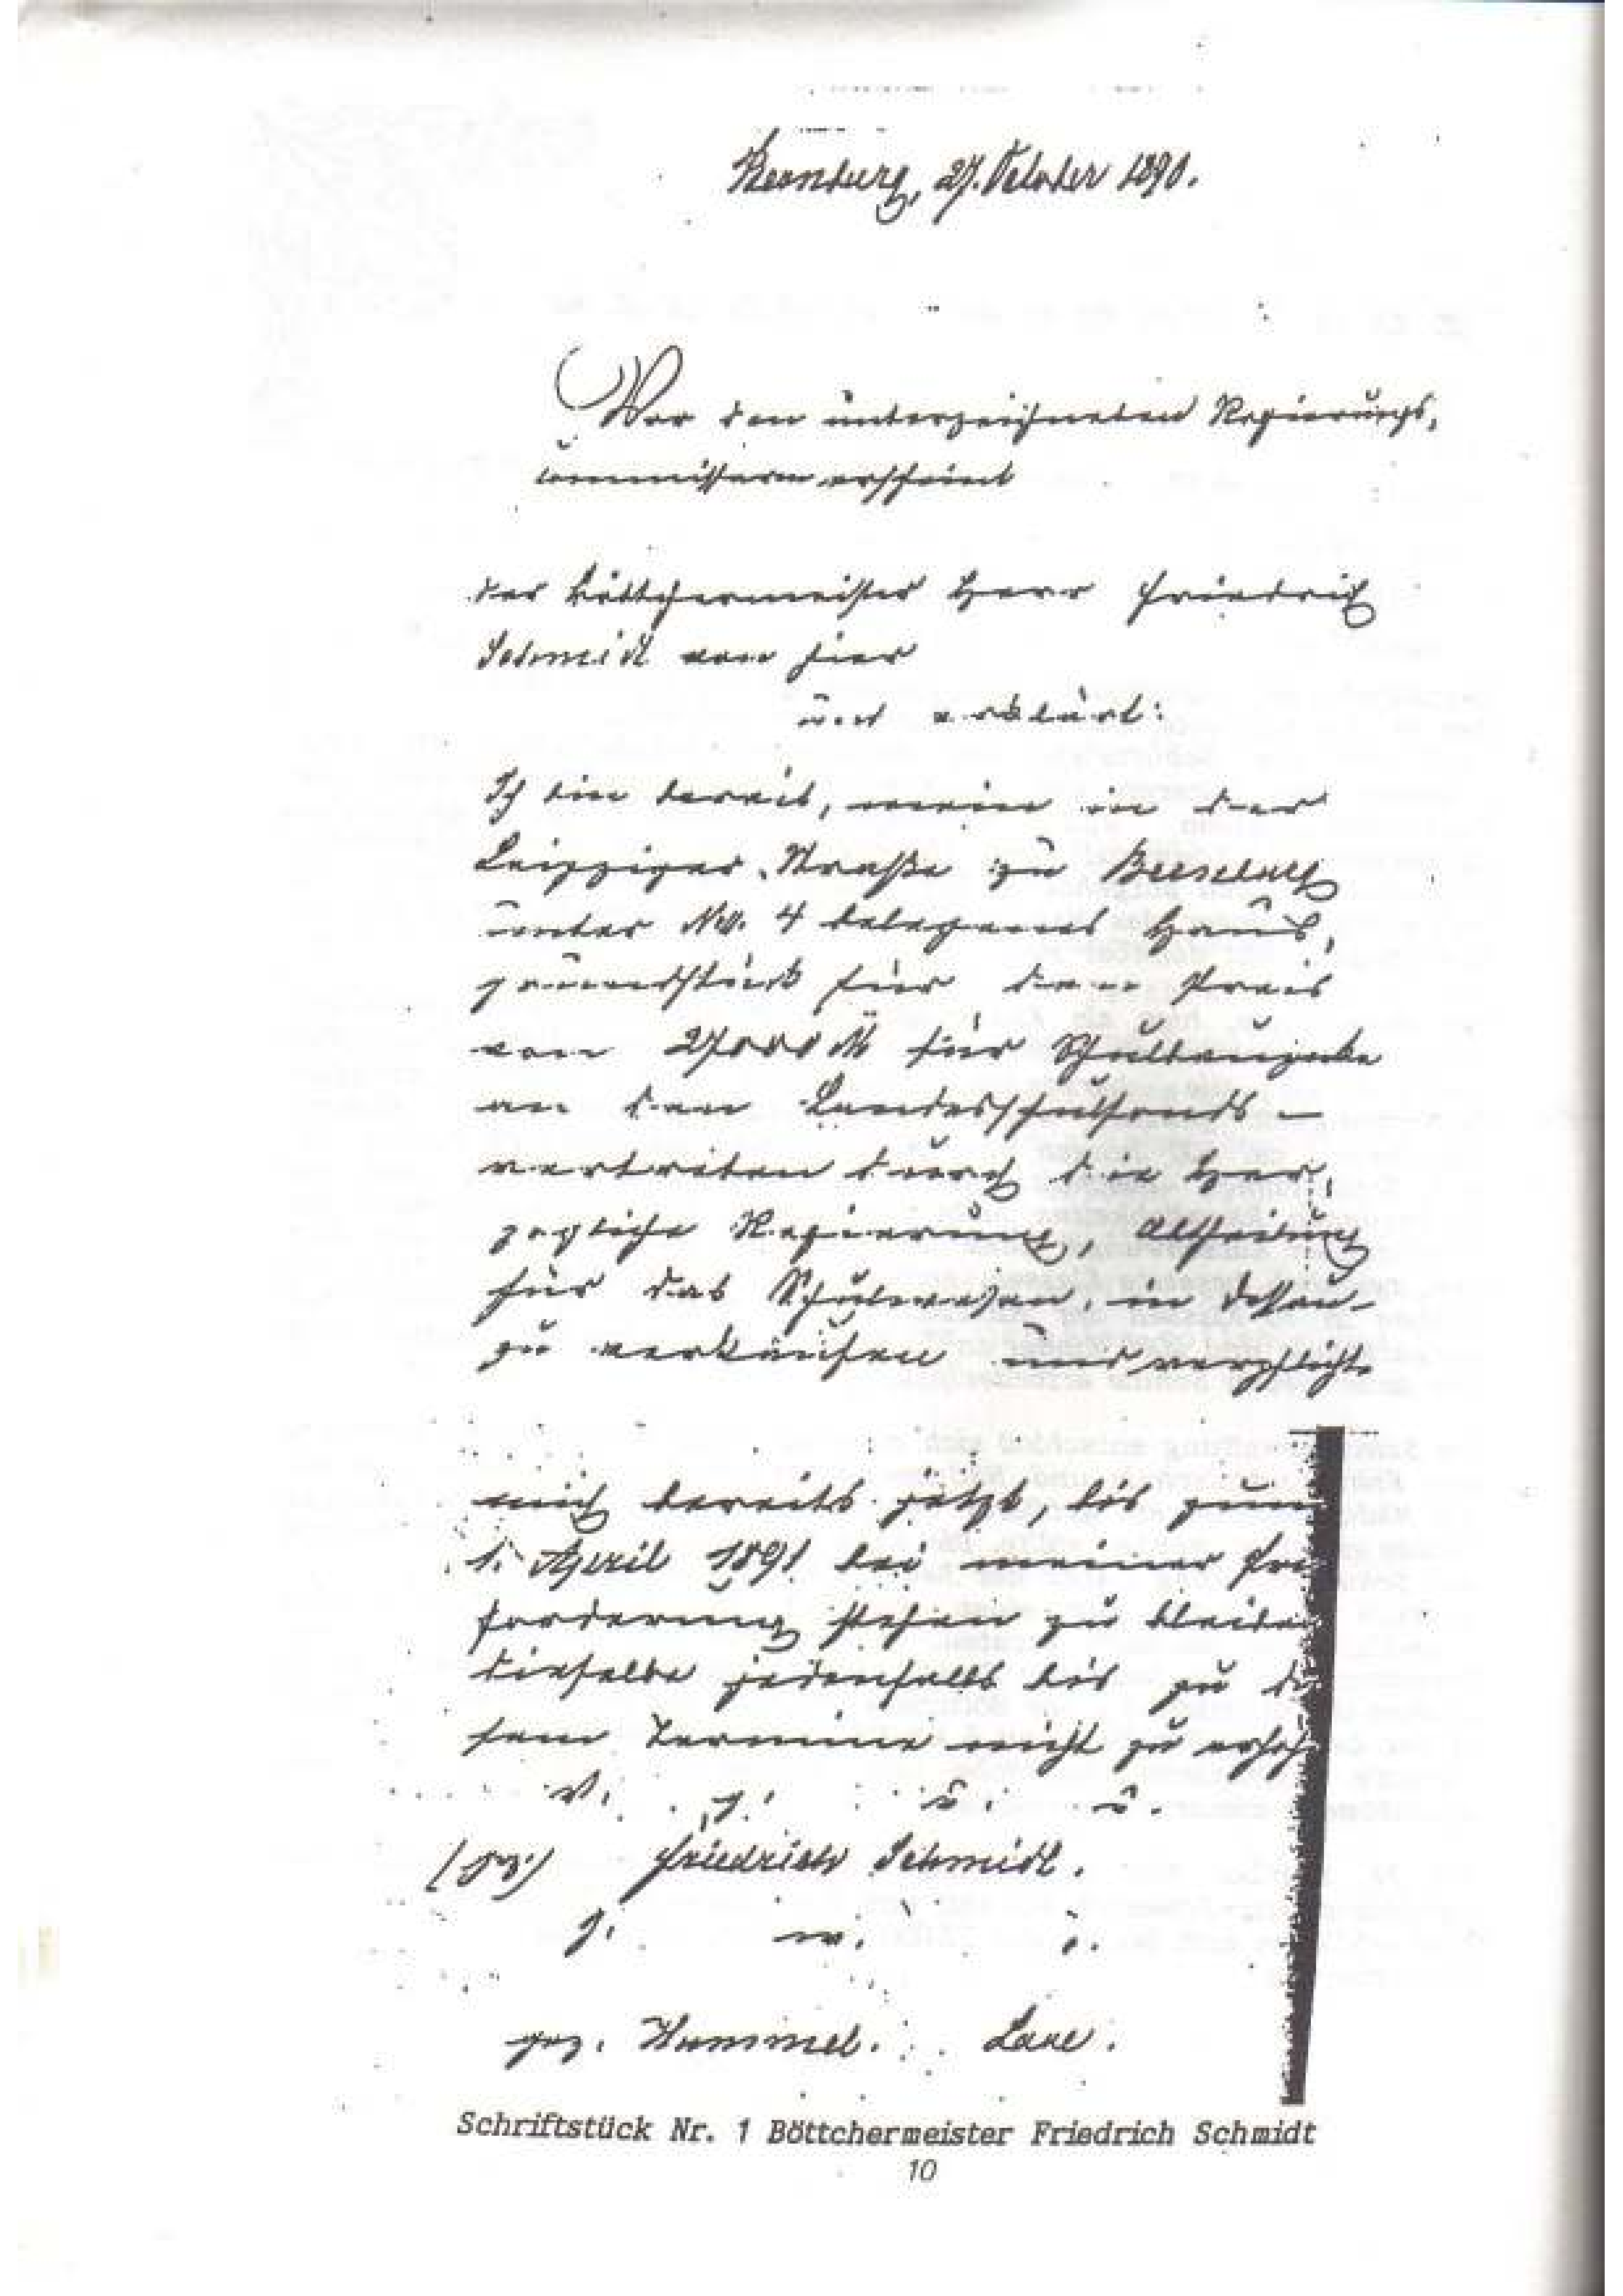 Bernburg, 27. October 1890.
Vor dem unterzeichneten Regierungs-
commissar erscheint
der Böttchermeister Herr Friedrich
Schmidt von hier
und erklärt:
Ich bin bereit, mein in der
Leipziger Straße zu Bernburg
unter No. 4 belegenes Haus-
grundstück für den Preis
von 27000 M für Schulbauzwecke
an den Landesschulfonds –
vertreten durch die Her-
zogliche Regierung, Abtheilung
für das Schulwesen, in Dessau –
zu verkaufen und verpflichte
mich bereits jetzt, bis zum
1. April 1891 bei meiner
forderung stehen zu bleiben
dieselbe jedenfalls bis zu die
sem Termine nicht zu erhöh
v. g. u. u.
(gz.) Friedrich Schmidt.
g. w. o.
gez. Hummel.
Schriftstück Nr. 1 Böttchermeister Friedrich Schmidt
10